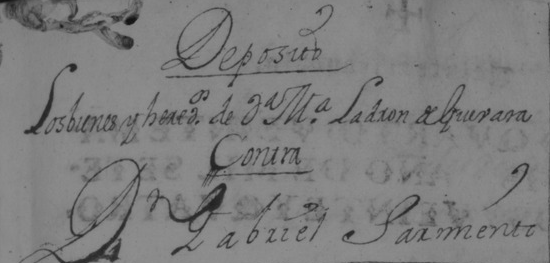 Deposito
Los bienes y hered.os de D.a M.a Ladron de Guevara
Contra
Dn Gabriel Sarmiento